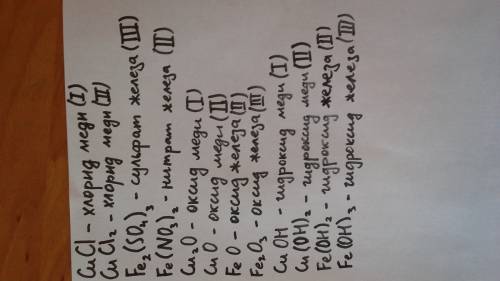 CuCl - хлорид меди (I)
CuCl₂ - хлорид меди (II)
Fe₂(SO₄)₃ - сульфат железа (III)
Fe(NO₃)₂ - нитрат железа (II)
Cu₂O - оксид меди (I)
CuO - оксид меди (II)
FeO - оксид железа (II)
Fe₂O₃ - оксид железа (III)
CuOH - гидроксид меди (I)
Cu(OH)₂ - гидроксид меди (II)
Fe(OH)₂ - гидроксид железа (II)
Fe(OH)₃ - гидроксид железа (III)